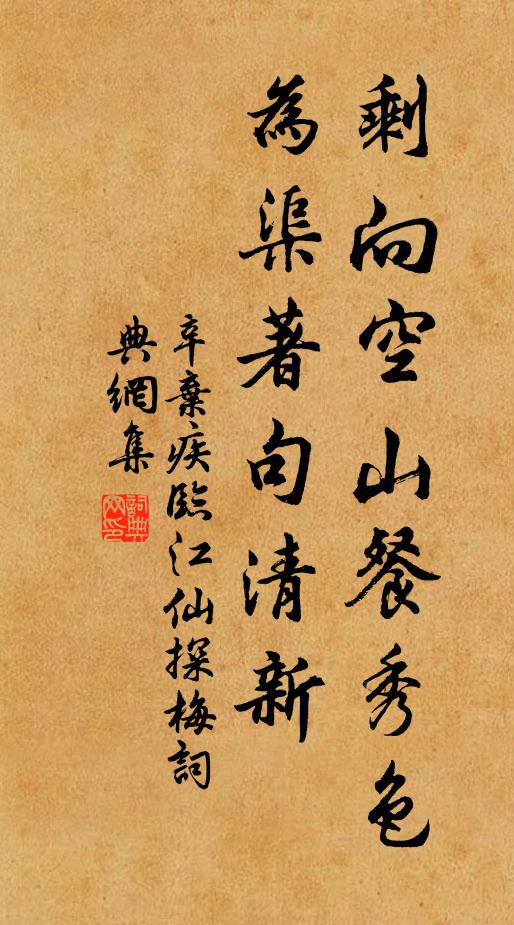 剩向空山餐秀色
為渠著句清新
辛棄疾臨江仙探梅詞
典網集
詞典
網印